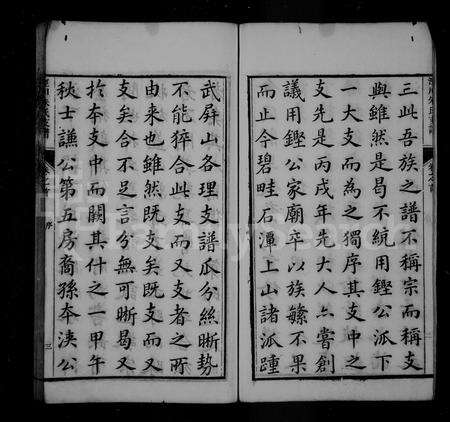 三此吾族之譜不稱宗而稱支
與雖然是昌不統用鏗公派下
一大支而為之獨序其支中之
支先是丙戌年先大人亦嘗創
議用鏗公家廟卒以族繁不果
而止今碧畦石潭上山諸派踵
武屏山各理支譜瓜分絲晰勢
不能猝合此支而又支者之所
由来也雖然既支矣既支而又
支矣合不足言分無可晰曷又
於本支中而闕其什之一甲午
秧士謙公第五房裔孫本浹公
序
三